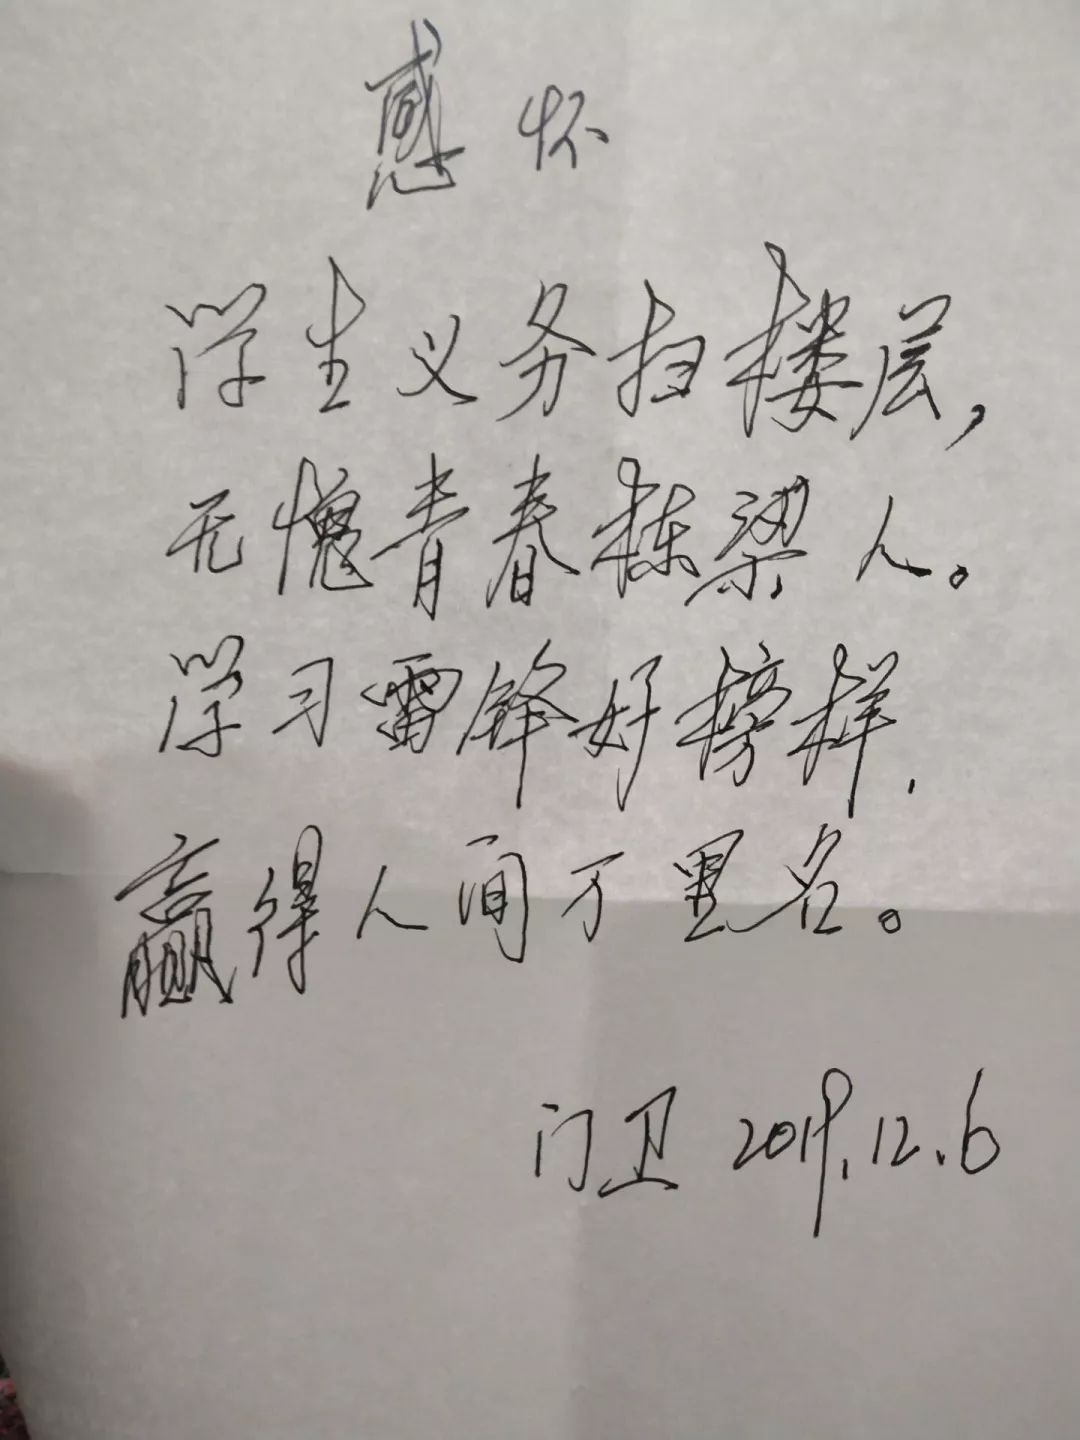 感怀
学生义务扫楼层,
无愧青春栋梁人。
学习雷锋好榜样,
赢得人间万里名。
门卫 2019.12.6